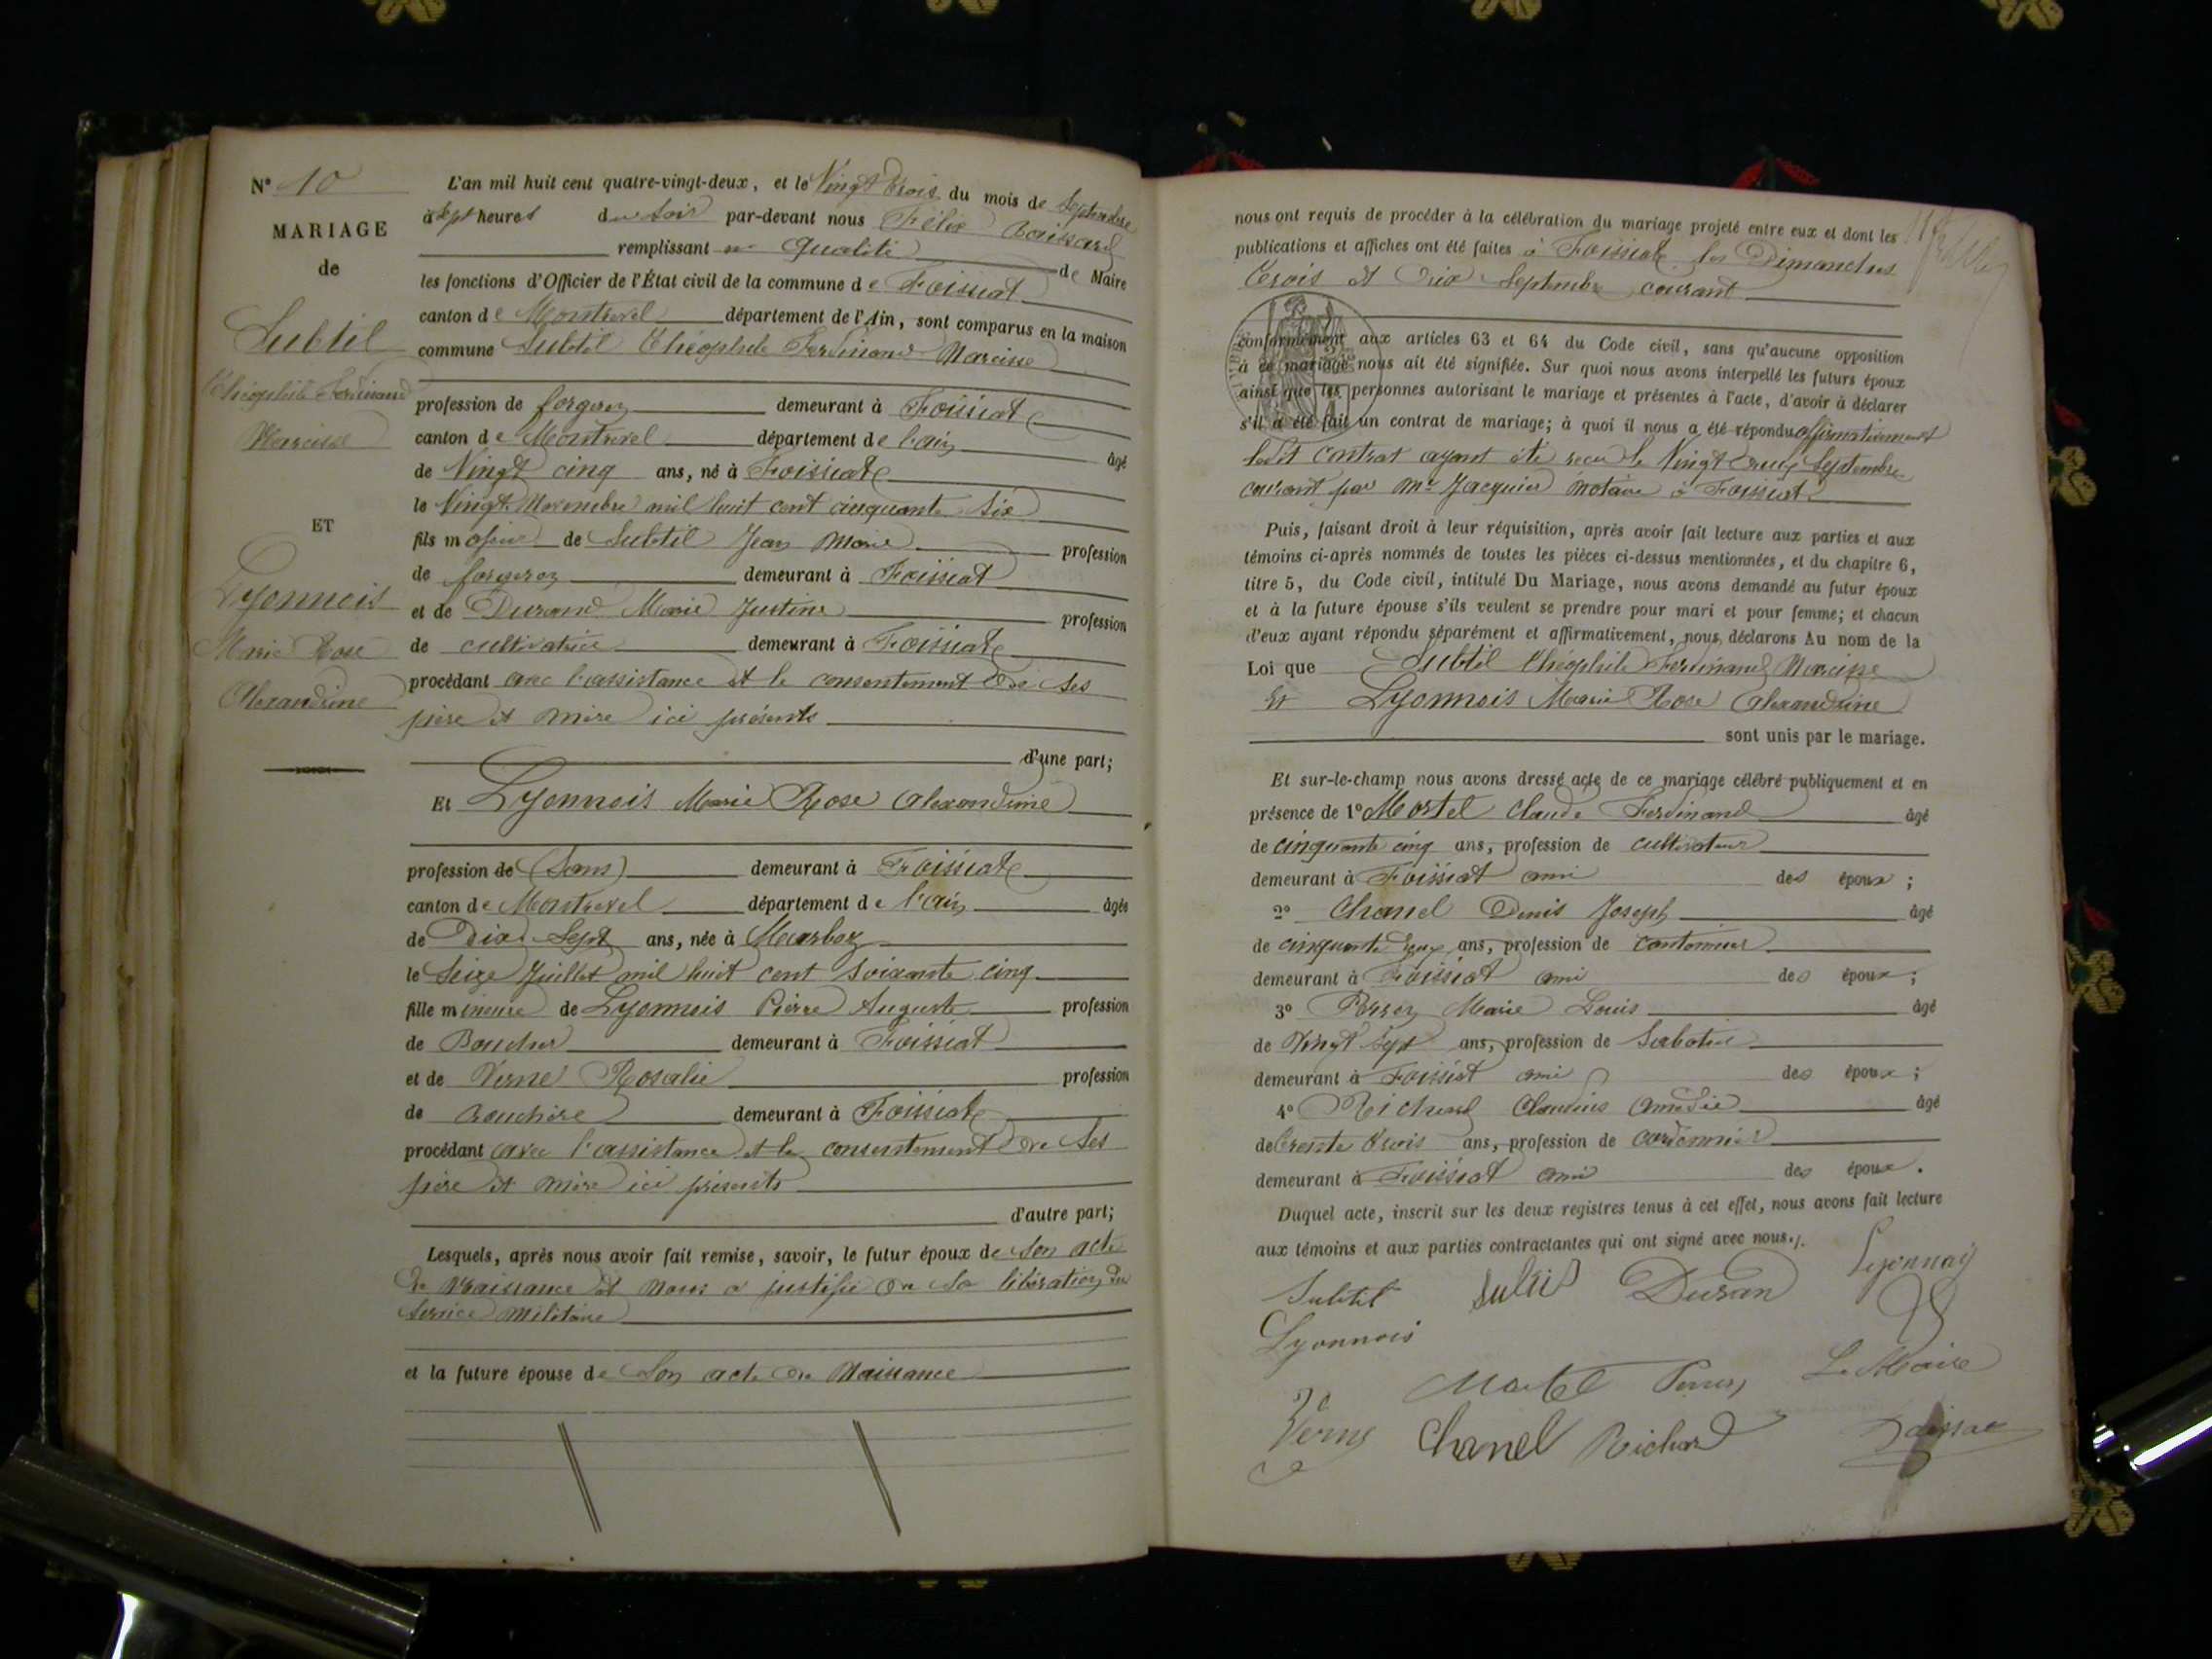 N° 10
MARIAGE
de
Subtil
Théophile Ferdinand
Narcisse
ET
Lyonnois
Marie Rose
Alexandrine
L'an mil huit cent quatre-vingt-deux, et le Vingt trois du mois de Septembre
à sept heures du soir par-devant nous Félix
remplissant en qualité de Maire
les fonctions d'Officier de l'État civil de la commune de Foissiat
canton de Montrevel département de l'Ain, sont comparus en la maison
commune Subtil Théophile Ferdinand Narcisse
profession de forgeron demeurant à Foissiat
canton de Montrevel département de l'ain âgé
de Vingt cinq ans, né à Foissiat
le Vingt Novembre mil huit cent cinquante six
fils majeur de Subtil Jean Marie profession
de forgeron demeurant à Foissiat
et de Durand Marie Justine profession
de cultivatrice demeurant à Foissiat
procédant avec l'assistance et le consentement de ses
père et mère ici présents
d'une part;
Et Lyonnois Marie Rose Alexandrine
profession de (Sans) demeurant à Foissiat
canton de Montrevel département de l'ain âgée
de Dix Sept ans, née à Marboz
le Seize Juillet mil huit cent soixante cinq
fille mineure de Lyonnois Pierre Auguste profession
de Boucher demeurant à Foissiat
et de Verne Rosalie profession
de Bouchère demeurant à Foissiat
procédant avec l'assistance et le consentement de ses
père et mère ici présents
d'autre part;
Lesquels, après nous avoir fait remise, savoir, le futur époux de son acte
de Naissance et nous a justifié de sa libération du
service militaire
et la future épouse de son acte de Naissance
nous ont requis de procéder à la célébration du mariage projeté entre eux et dont les
publications et affiches ont été faites à Foissiat les Dimanches
trois et dix Septembre courant
conformément aux articles 63 et 64 du Code civil, sans qu'aucune opposition
à ce mariage nous ait été signifiée. Sur quoi nous avons interpellé les futurs époux
ainsi que les personnes autorisant le mariage et présentes à l'acte, d'avoir à déclarer
s'il a été fait un contrat de mariage; à quoi il nous a été répondu affirmativement
ledit contrat ayant été reçu le Vingt deux Septembre
courant par Me Jacquier notaire à Foissiat
Puis, faisant droit à leur réquisition, après avoir fait lecture aux parties et aux
témoins ci-après nommés de toutes les pièces ci-dessus mentionnées, et du chapitre 6,
titre 5, du Code civil, intitulé Du Mariage, nous avons demandé au futur époux
et à la future épouse s'ils veulent se prendre pour mari et pour femme; et chacun
d'eux ayant répondu séparément et affirmativement, nous déclarons Au nom de la
Loi que Subtil Théophile Ferdinand Narcisse
Et Lyonnois Marie Rose Alexandrine
sont unis par le mariage.
Et sur-le-champ nous avons dressé acte de ce mariage célébré publiquement et en
présence de 1° Mortel Claude Ferdinand âgé
de cinquante cinq ans, profession de cultivateur
demeurant à Foissiat ami des époux;
2° Chanel Denis Joseph âgé
de cinquante deux ans, profession de cantonnier
demeurant à Foissiat ami des époux;
3° Perren Marie Louis âgé
de Vingt sept ans, profession de Sabotier
demeurant à Foissiat ami des époux;
4° Richard Claudius Amédée âgé
de trente trois ans, profession de cordonnier
demeurant à Foissiat ami des époux.
Duquel acte, inscrit sur les deux registres tenus à cet effet, nous avons fait lecture
aux témoins et aux parties contractantes qui ont signé avec nous./.
Subtil Subtil Duran Lyonnais
Lyonnois
Martel Perren Le Maire
Verne Chanel Richard